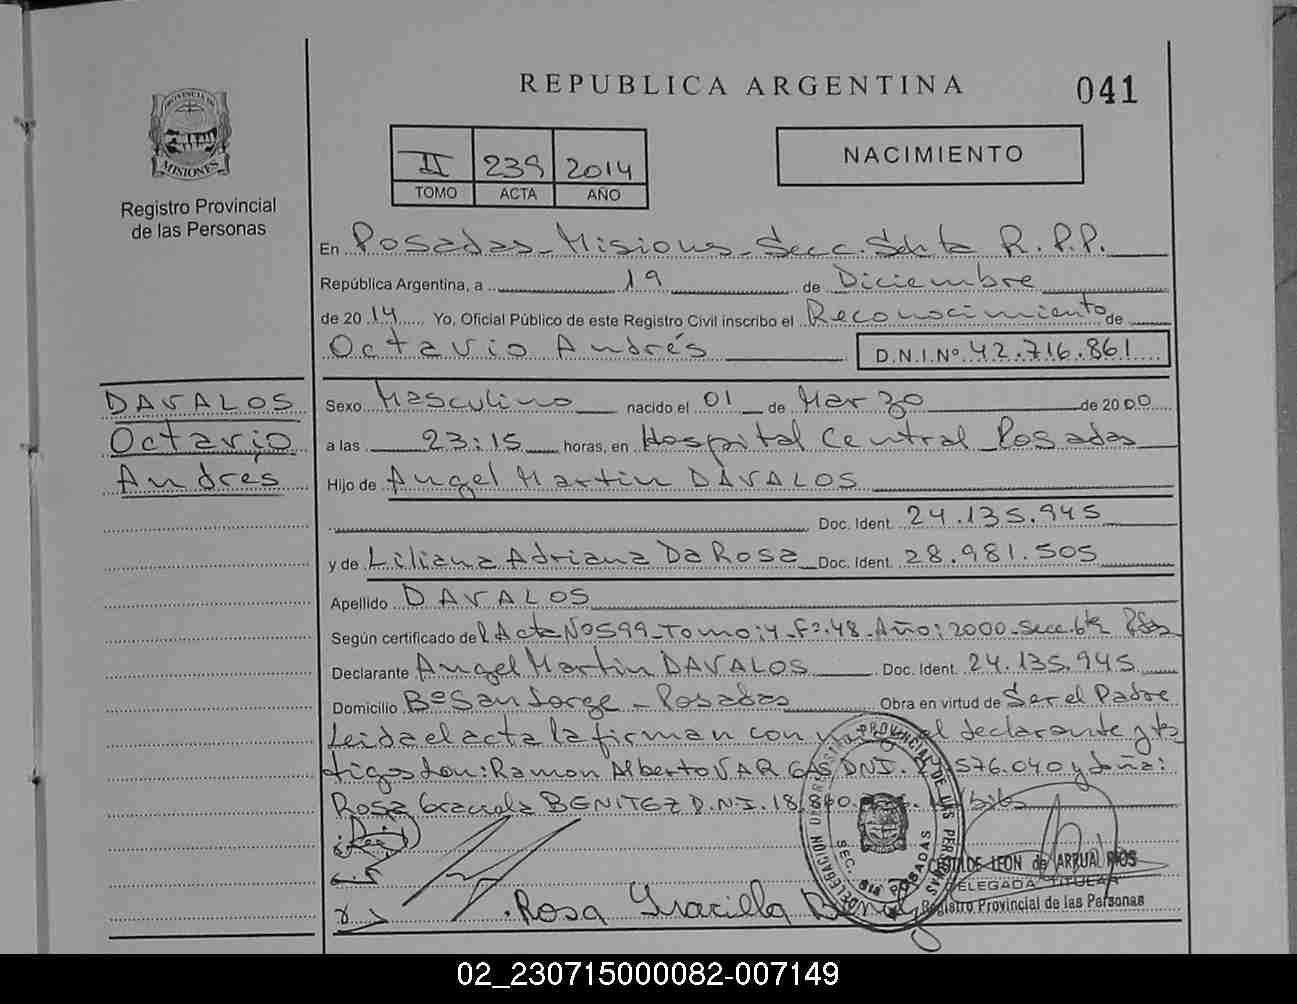 REPUBLICA ARGENTINA
041
PROVINCIA DE
MISIONES
Registro Provincial
de las Personas
II 239 2014
TOMO ACTA AÑO
NACIMIENTO
En Posadas - Misiones - Secc. Sexta R.P.P.
República Argentina, a 19 de Diciembre
de 2014 Yo, Oficial Público de este Registro Civil inscribo el Reconocimiento de
Octavio Andrés D.N.I.Nº 42.716.861
DAVALOS
Octavio
Andrés
Sexo Masculino nacido el 01 de Marzo de 2000
a las 23:15 horas, en Hospital Central Posadas
Hijo de Angel Martin DAVALOS
Doc. Ident. 24.135.945
y de Liliana Adriana Da Rosa Doc. Ident. 28.981.505
Apellido DAVALOS
Según certificado del Acta Nº 599 - Tomo: 4 - Fº: 48 - Año: 2000 - Secc. 6ta Pdas
Declarante Angel Martin DAVALOS Doc. Ident. 24.135.945
Domicilio Bº San Jorge - Posadas Obra en virtud de Ser el Padre
Leida el acta la firman con el declarante y tes
tigos Don: Ramon Alberto VARGAS DNI. 576.040 y doña:
Rosa Graciela BENITEZ D.N.I. 18.840.
Rosa Graciella
SEC. 6ta POSADAS
DE LEON de ARRUA RIOS
DELEGADA TITULAR
Registro Provincial de las Personas
02_230715000082-007149